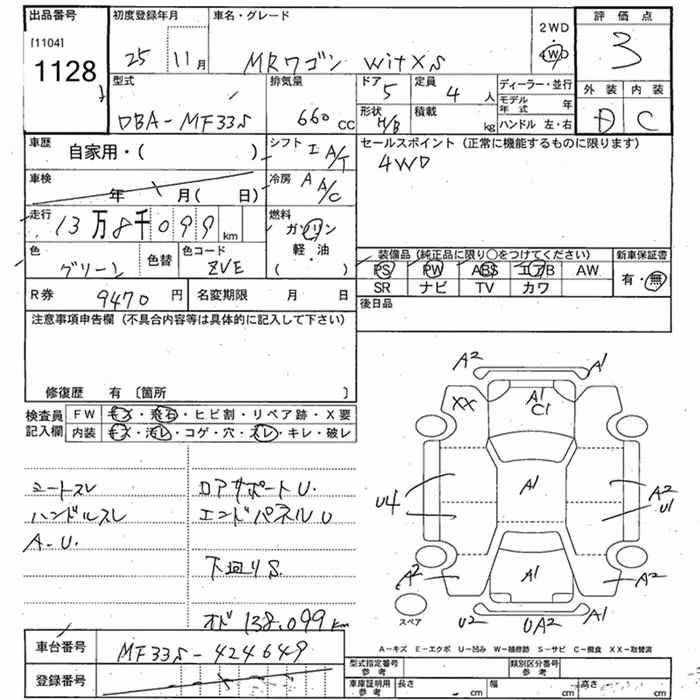 出品番号
[1104]
1128
初度登録年月
25 11月
車名・グレード
MRワゴン witXS
2WD
4WD
評価点
3
外装 内装
D C
型式
DBA-MF33S
排気量
660 CC
ドア
5
形状
H/B
定員
4 人
積載
kg
ディーラー・並行
モデル年式 年
ハンドル 左・右
車歴
自家用・( )
シフト
I A/T
セールスポイント (正常に機能するものに限ります)
4WD
車検
年 月( 日)
冷房
A A/C
走行
13万8千099 km
燃料
ガソリン
軽・油
( )
色
グリーン
色替
色コード
ZVE
装備品 (純正品に限り○をつけてください)
PS PW ABS エアB AW
SR ナビ TV カワ
新車保証書
有・無
R券 9470 円
名変期限 月 日
後日品
注意事項申告欄 (不具合内容等は具体的に記入して下さい)
修復歴 有 〔箇所 〕
検査員記入欄
FW キズ・飛石・ヒビ割・リペア跡・X要
内装 キズ・汚レ・コゲ・穴・スレ・キレ・破レ
シートスレ
ハンドルスレ
A-U.
ロアサポートU.
エンドパネルU
下廻りS.
オド 138,099 km
A2 A1
XX
A1
C1
U4
A1
A2
U1
A2
A1
A2
スペア
U2 UA2 A1
車台番号
MF33S-424649
登録番号
A-キズ E-エクボ U-凹み W-補修跡 S-サビ C-腐食 XX-取替済
型式指定番号 参考
類別区分番号 参考
車庫証明用 参考
長さ - cm
幅 cm
高さ cm